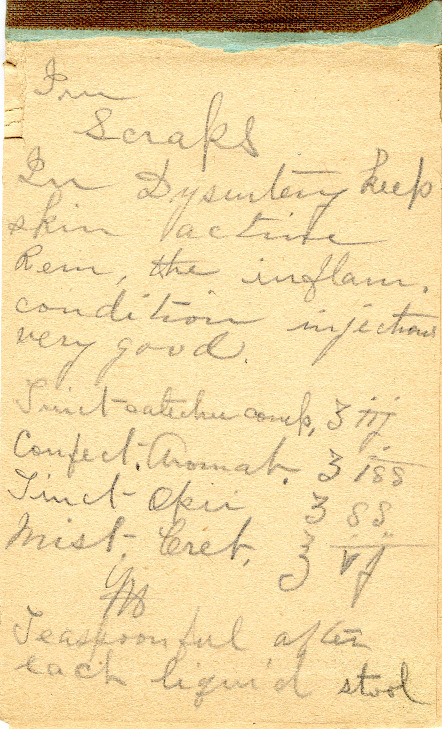 Scraps
In Dysentery keep
skin active
Rem, the inflam.
condition injections
very good.
Tinct catechu comp, ʒ iij
Confect. Aromat. ʒ iss
Tinct Opii ʒ ss
Mist. Cret. ℥ vj
M
Teaspoonful after
each liquid stool